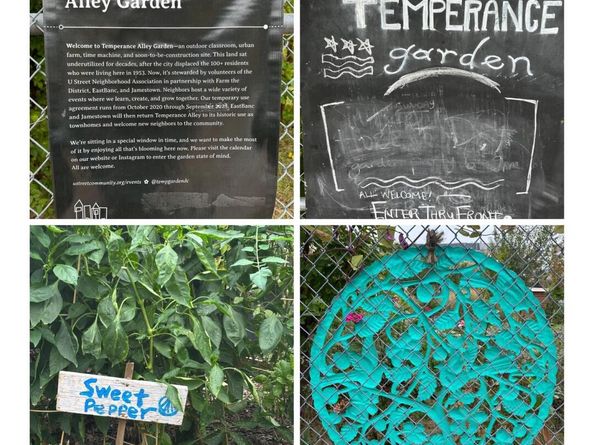 Alley Garden
Welcome to Temperance Alley Garden—an outdoor classroom, urban
farm, time machine, and soon-to-be-construction site. This land sat
underutilized for decades, after the city displaced the 100+ residents
who were living here in 1953. Now, it's stewarded by volunteers of the
U Street Neighborhood Association in partnership with Farm the
District, EastBanc, and Jamestown. Neighbors host a wide variety of
events where we learn, create, and grow together. Our temporary use
agreement runs from October 2020 through September EastBanc
and Jamestown will then return Temperance Alley to its historic use as
townhomes and welcome new neighbors to the community.
We're sitting in a special window in time, and we want to make the most
of it by enjoying all that's blooming here now. Please visit the calendar
on our website or Instagram to enter the garden state of mind.
All are welcome.
ustreetcommunity.org/events @tempgardendc
TEMPERANCE
garden
Sunday
ALL WELCOME!
ENTER THRU FRONT
Sweet
Pepper